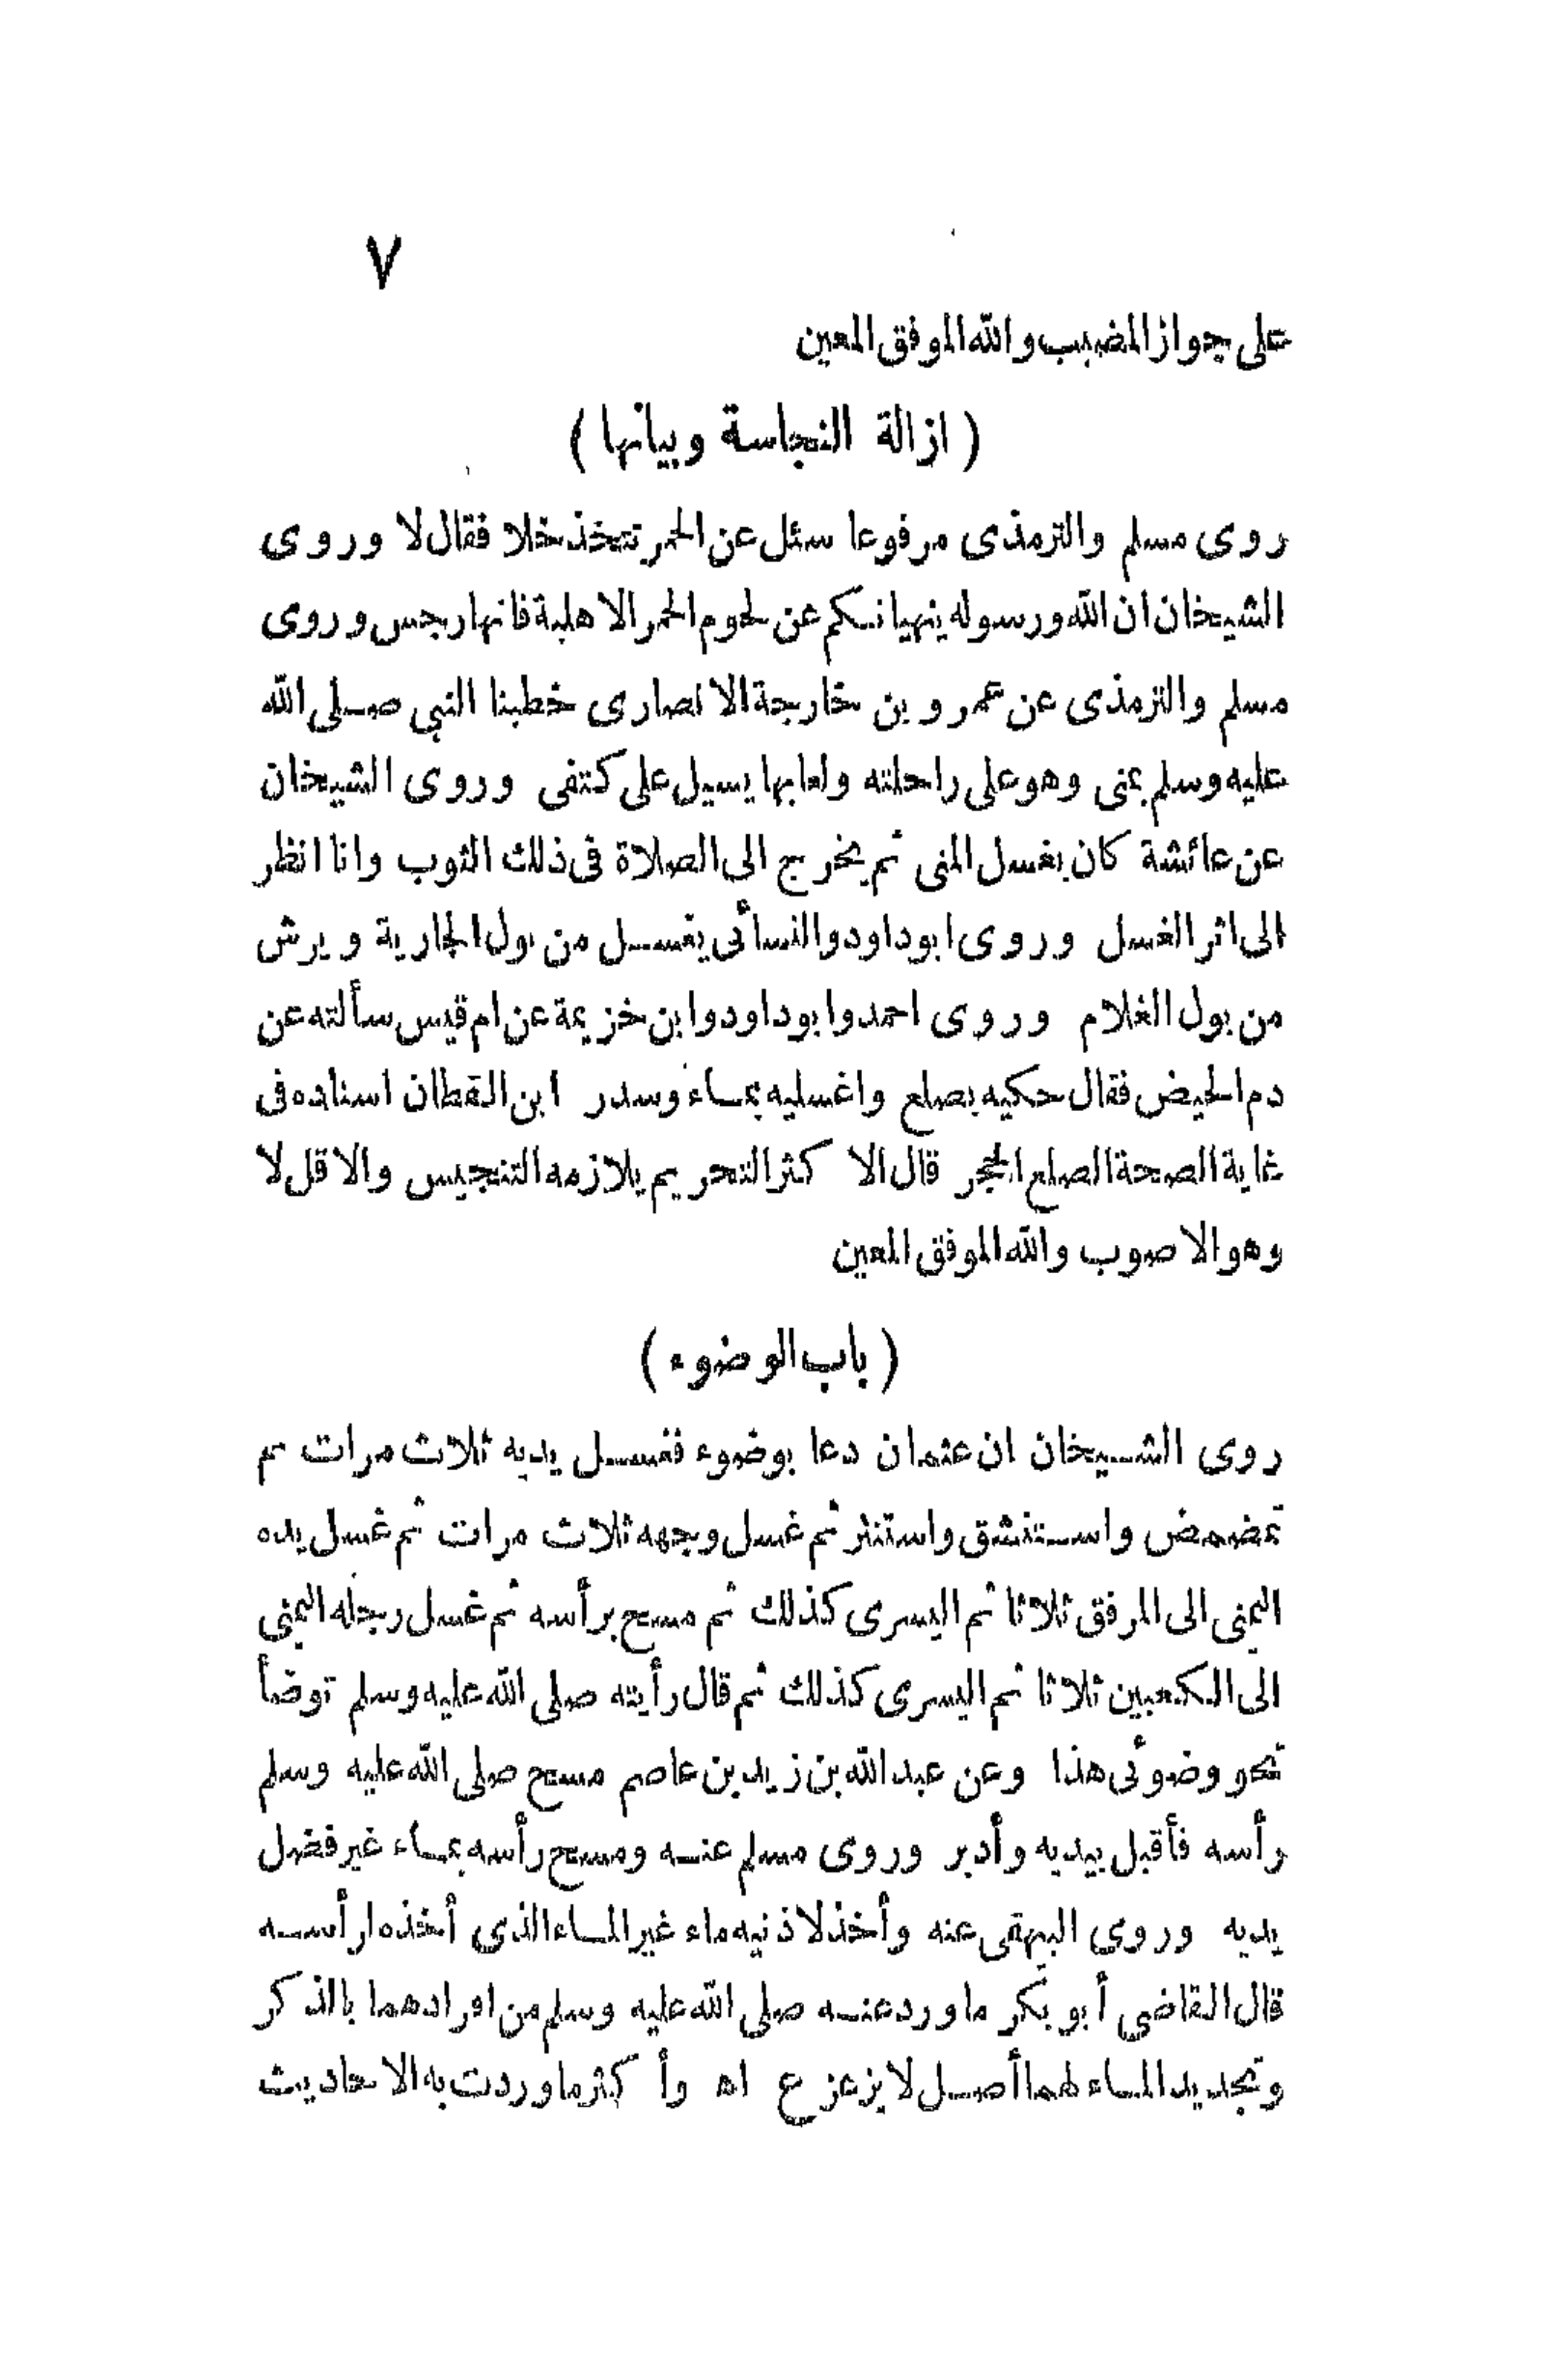 ٧
على جواز المضبب والله الموفق المعين
( ازالة النجاسة وبيانها )
روى مسلم والترمذى مرفوعا سئل عن الخمر تتخذ خلا فقال لا وروى
الشيخان ان الله ورسوله ينهيانكم عن لحوم الحمر الاهلية فانها رجس وروى
مسلم والترمذى عن عمرو بن خارجة الانصارى خطبنا النبى صلى الله
عليه وسلم بمنى وهو على راحلته ولعابها يسيل على كتفى وروى الشيخان
عن عائشة كان يغسل المنى ثم يخرج الى الصلاة فى ذلك الثوب وانا انظر
الى اثر الغسل وروى ابو داود والنسائى يغسل من بول الجارية ويرش
من بول الغلام وروى احمد وابو داود وابن خزيمة عن ام قيس سألته عن
دم الحيض فقال حكيه بصلع واغسليه بماء وسدر ابن القطان اسناده فى
غاية الصحة الصلع الحجر قال الاكثر التحريم يلازمه التنجيس والاقل لا
وهو الاصوب والله الموفق المعين
( باب الوضوء )
روى الشيخان ان عثمان دعا بوضوء فغسل يديه ثلاث مرات ثم
تمضمض واستنشق واستنثر ثم غسل وجهه ثلاث مرات ثم غسل يده
اليمنى الى المرفق ثلاثا ثم اليسرى كذلك ثم مسح برأسه ثم غسل رجله اليمنى
الى الكعبين ثلاثا ثم اليسرى كذلك ثم قال رأيته صلى الله عليه وسلم توضأ
نحو وضوئى هذا وعن عبد الله بن زيد بن عاصم مسح صلى الله عليه وسلم
رأسه فأقبل بيديه وأدبر وروى مسلم عنه ومسح رأسه بماء غير فضل
يديه وروى البيهقى عنه وأخذ لاذنيه ماء غير الماء الذى أخذه لرأسه
قال القاضى أبو بكر ما ورد عنه صلى الله عليه وسلم من افرادهما بالذكر
وتجديد الماء لهما أصل لا يزعزع اه وأكثر ما وردت به الاحاديث